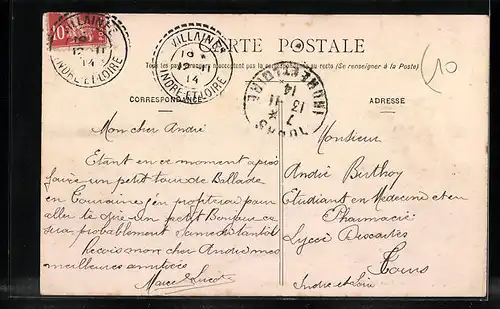 VILLAINES
12-11
14
INDRE-ET-LOIRE
10
VILLAINES
12-11
14
INDRE-ET-LOIRE
CARTE POSTALE
Tous les pays étrangers n'acceptent pas la correspondance au recto (Se renseigner à la Poste)
TOURS
INDRE ET LOIRE
7
13 11
14
10
CORRESPONDANCE
ADRESSE
Mon cher André
Etant en ce moment après
faire un petit tour de Ballade
en Touraine j'en profiterai pour
aller te dire Un petit Bonjour ce
sera probablement Samedi tantôt
Reçois mon cher André mes
meilleures amitiés
Marcel
Monsieur
André Berthoy
Etudiant en Medecine et en
Pharmacie
Lycée Descartes
Tours
Indre et Loire